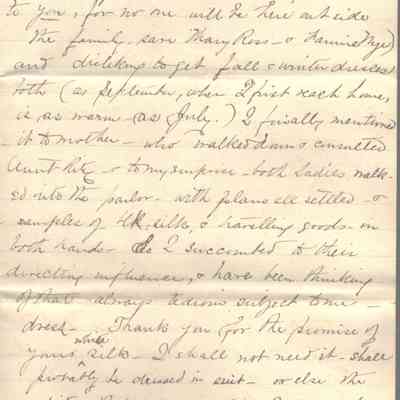 to you, for no one will be here outside
the family, save Mary Ross - & Fannie
and disliking to get fall & winter dresses
both (as September, when I first reach home,
is as warm as July.) I finally mentioned
it to mother - who walked down & consulted
Aunt - & to my surprise - both ladies walk-
ed into the parlor - with plans all settled - &
samples of silk, & travelling goods - in
both hands - So I succombed to their
directing influences, & have been thinking
of that always tedious subject to me -
dress - Thank you for the promise of
yours white silk - I shall not need it - shall
probably be dressed in suit - or else the